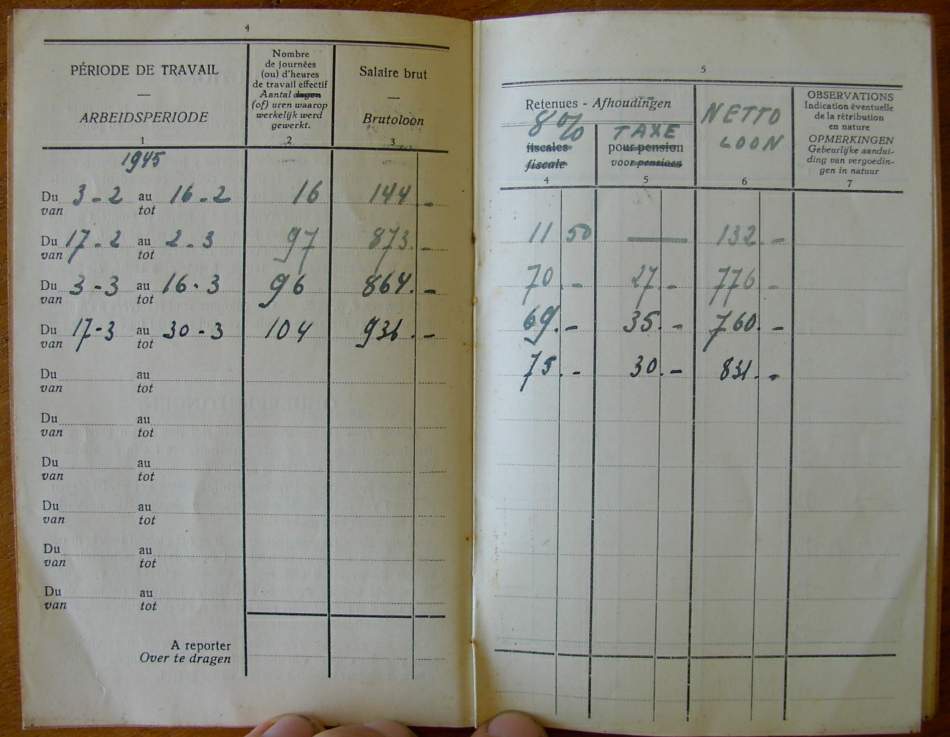 4
PÉRIODE DE TRAVAIL
—
ARBEIDSPERIODE
1
Nombre
de journées
(ou) d'heures
de travail effectif
Aantal dagen
(of) uren waarop
werkelijk werd
gewerkt.
2
Salaire brut
—
Brutoloon
3
1945
Du 3-2 au 16-2 16 144.-
van tot
Du 17-2 au 2-3 97 873.-
van tot
Du 3-3 au 16-3 96 864.-
van tot
Du 17-3 au 30-3 104 936.-
van tot
Du au
van tot
Du au
van tot
Du au
van tot
Du au
van tot
Du au
van tot
Du au
van tot
A reporter
Over te dragen
5
Retenues - Afhoudingen
8%
fiscales
fiscale
4
TAXE
pour pension
voor pensioen
5
NETTO
LOON
6
OBSERVATIONS
Indication éventuelle
de la rétribution
en nature
OPMERKINGEN
Gebeurlijke aandui-
ding van vergoedin-
gen in natuur
7
11 50 — 132.-
70.- 27.- 776.-
69.- 35.- 760.-
75.- 30.- 831.-